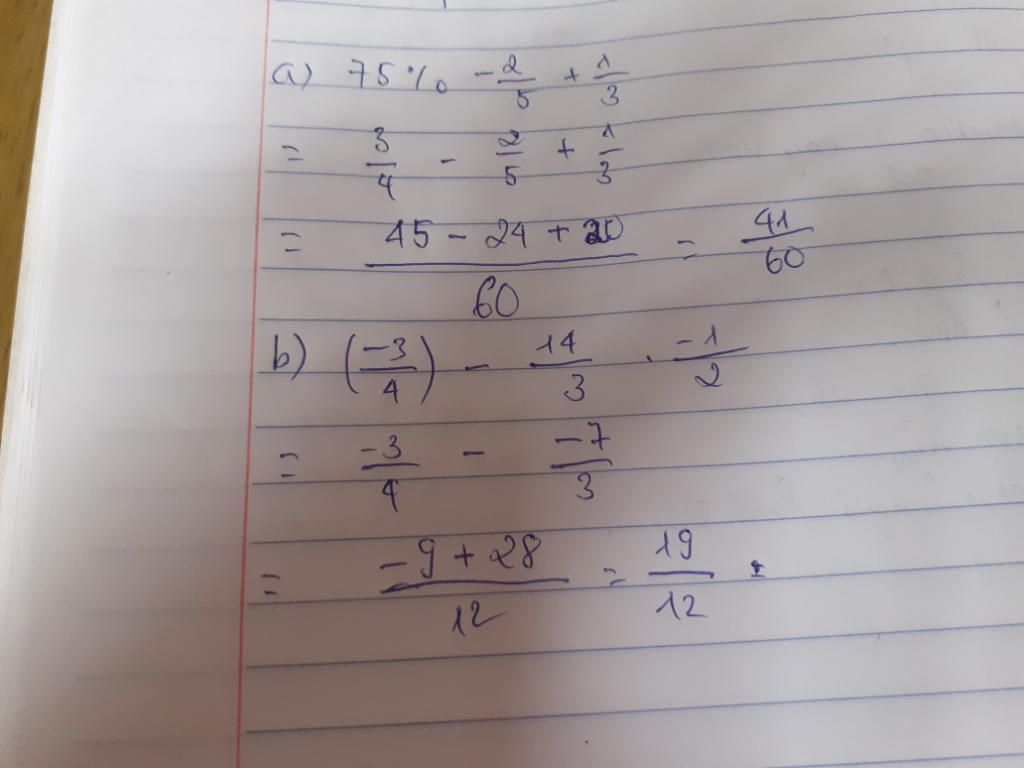 a) 75% - 2/5 + 1/3
= 3/4 - 2/5 + 1/3
= (45 - 24 + 20)/60 = 41/60
b) (-3/4) - 14/3 . -1/2
= -3/4 - -7/3
= (-9 + 28)/12 = 19/12 .